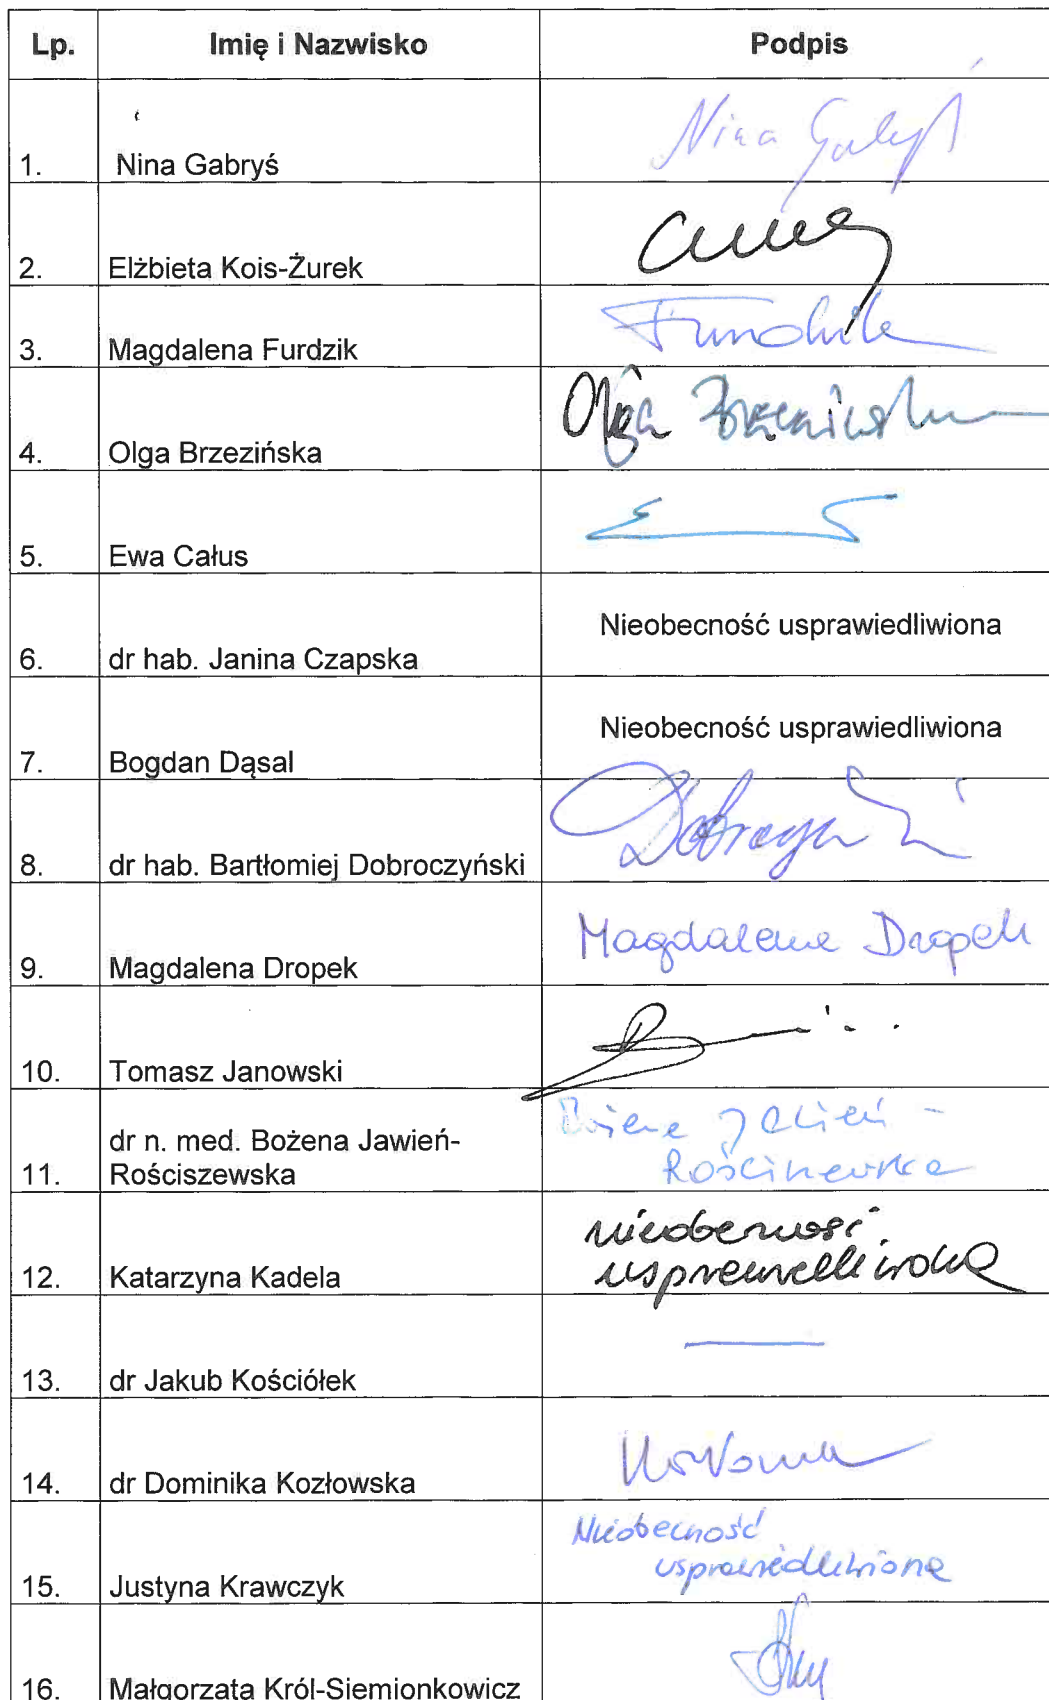 Lp. Imię i Nazwisko Podpis
1. Nina Gabryś Nina Gabryś
2. Elżbieta Kois-Żurek
3. Magdalena Furdzik
4. Olga Brzezińska Olga Brzezińska
5. Ewa Całus
6. dr hab. Janina Czapska Nieobecność usprawiedliwiona
7. Bogdan Dąsal Nieobecność usprawiedliwiona
8. dr hab. Bartłomiej Dobroczyński
9. Magdalena Dropek Magdalena Dropek
10. Tomasz Janowski
dr n. med. Bożena Jawień-
11. Rościszewska Rościszewska
nieobecność
12. Katarzyna Kadela usprawiedliwiona
13. dr Jakub Kościółek —
14. dr Dominika Kozłowska
Nieobecność
15. Justyna Krawczyk usprawiedliwiona
16. Małgorzata Król-Siemionkowicz